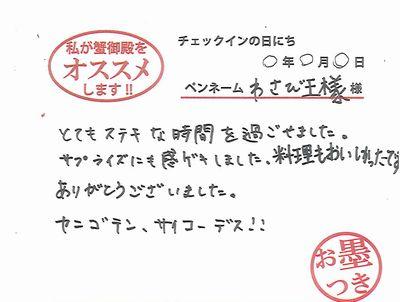 私が蟹御殿を
オススメ
します!!
チェックインの日にち
○年○月○日
ペンネーム わさび王様 様
とてもステキな時間を過ごせました。
サプライズにも感ゲキしました、料理もおいしかったです
ありがとうございました。
カニゴテン、サイコーデス!!
お墨
つき